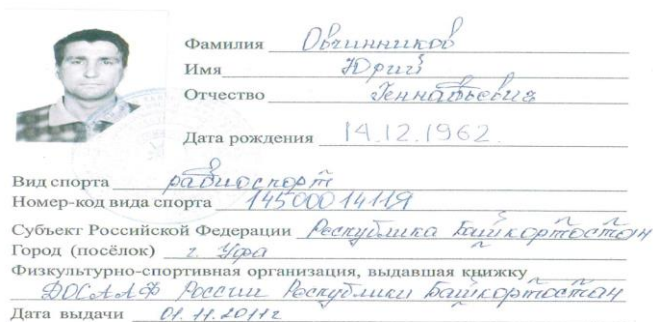 Фамилия Овчинников
Имя Юрий
Отчество Геннадьевич
Дата рождения 14.12.1962
Вид спорта радиоспорт
Номер-код вида спорта 1450001411Я
Субъект Российской Федерации Республика Башкортостан
Город (посёлок) г. Уфа
Физкультурно-спортивная организация, выдавшая книжку
ДОСААФ России Республики Башкортостан
Дата выдачи 01.11.2011г